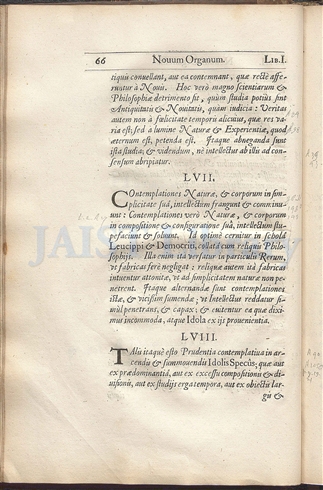 66 Nouum Organum. LIB.I.
tiquis conuellant, aut ea contemnant, quæ rectè affe-
runtur à Nouis. Hoc verò magno scientiarum &
Philosophiæ detrimento fit, quùm studia potiùs sint
Antiquitatis & Nouitatis, quàm iudicia: Veritas
autem non à fælicitate temporis alicuius, quæ res va-
ria est; sed a lumine Naturæ & Experientiæ, quod
æternum est, petenda est. Itaque abneganda sunt
ista studia; & videndum, nè intellectus ab illis ad con-
sensum abripiatur.
LVII.
Contemplationes Naturæ, & corporum in sim-
plicitate suâ, intellectum frangunt & comminu-
unt: Contemplationes verò Naturæ, & corporum
in compositione & configuratione suâ, intellectum stu-
pefaciunt & soluunt. Id optimè cernitur in scholâ
Leucippi & Democriti, collatâ cum reliquis Philo-
sophijs. Illa enim ità versatur in particulis Rerum,
vt fabricas ferè negligat: reliquæ autem ità fabricas
intuentur attonitæ, vt ad simplicitatem naturæ non pe-
netrent. Itaque alternandæ sunt contemplationes
istæ, & vicissim sumendæ; vt Intellectus reddatur si-
mùl penetrans, & capax; & euitentur ea quæ dixi-
mus incommoda, atque Idola ex ijs prouenientia.
LVIII.
Talis itaquè esto Prudentia contemplatiua in ar-
cendis & summouendis Idolis Specùs; quæ aut
ex prædominantiâ, aut ex excessu compositionis & di-
uisionis, aut ex studijs erga tempora, aut ex obiectis lar-
gis &